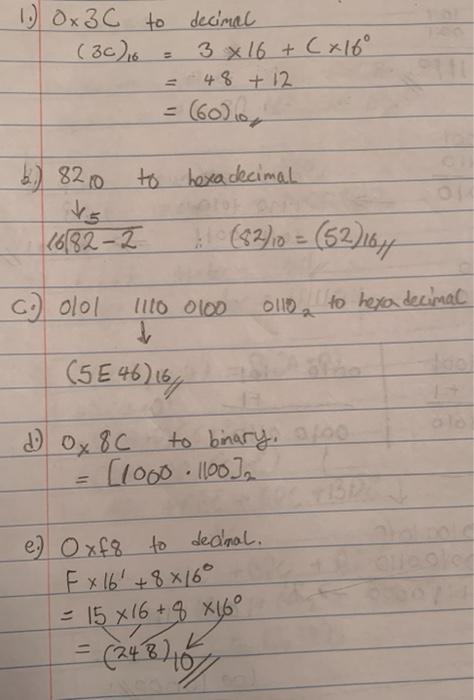 1.) 0x3C to decimal
(3C)₁₆ = 3 x16 + C x16⁰
= 48 + 12
= (60)₁₀
b.) 82₁₀ to hexadecimal
↓ 5
16/82 - 2 ∴ (82)₁₀ = (52)₁₆
c.) 0101 1110 0100 0110₂ to hexadecimal
↓
(5E46)₁₆
d.) 0x 8C to binary.
= [1000 . 1100]₂
e.) 0xf8 to decimal.
F x16¹ + 8 x16⁰
= 15 x16 + 8 x16⁰
= (248)₁₀